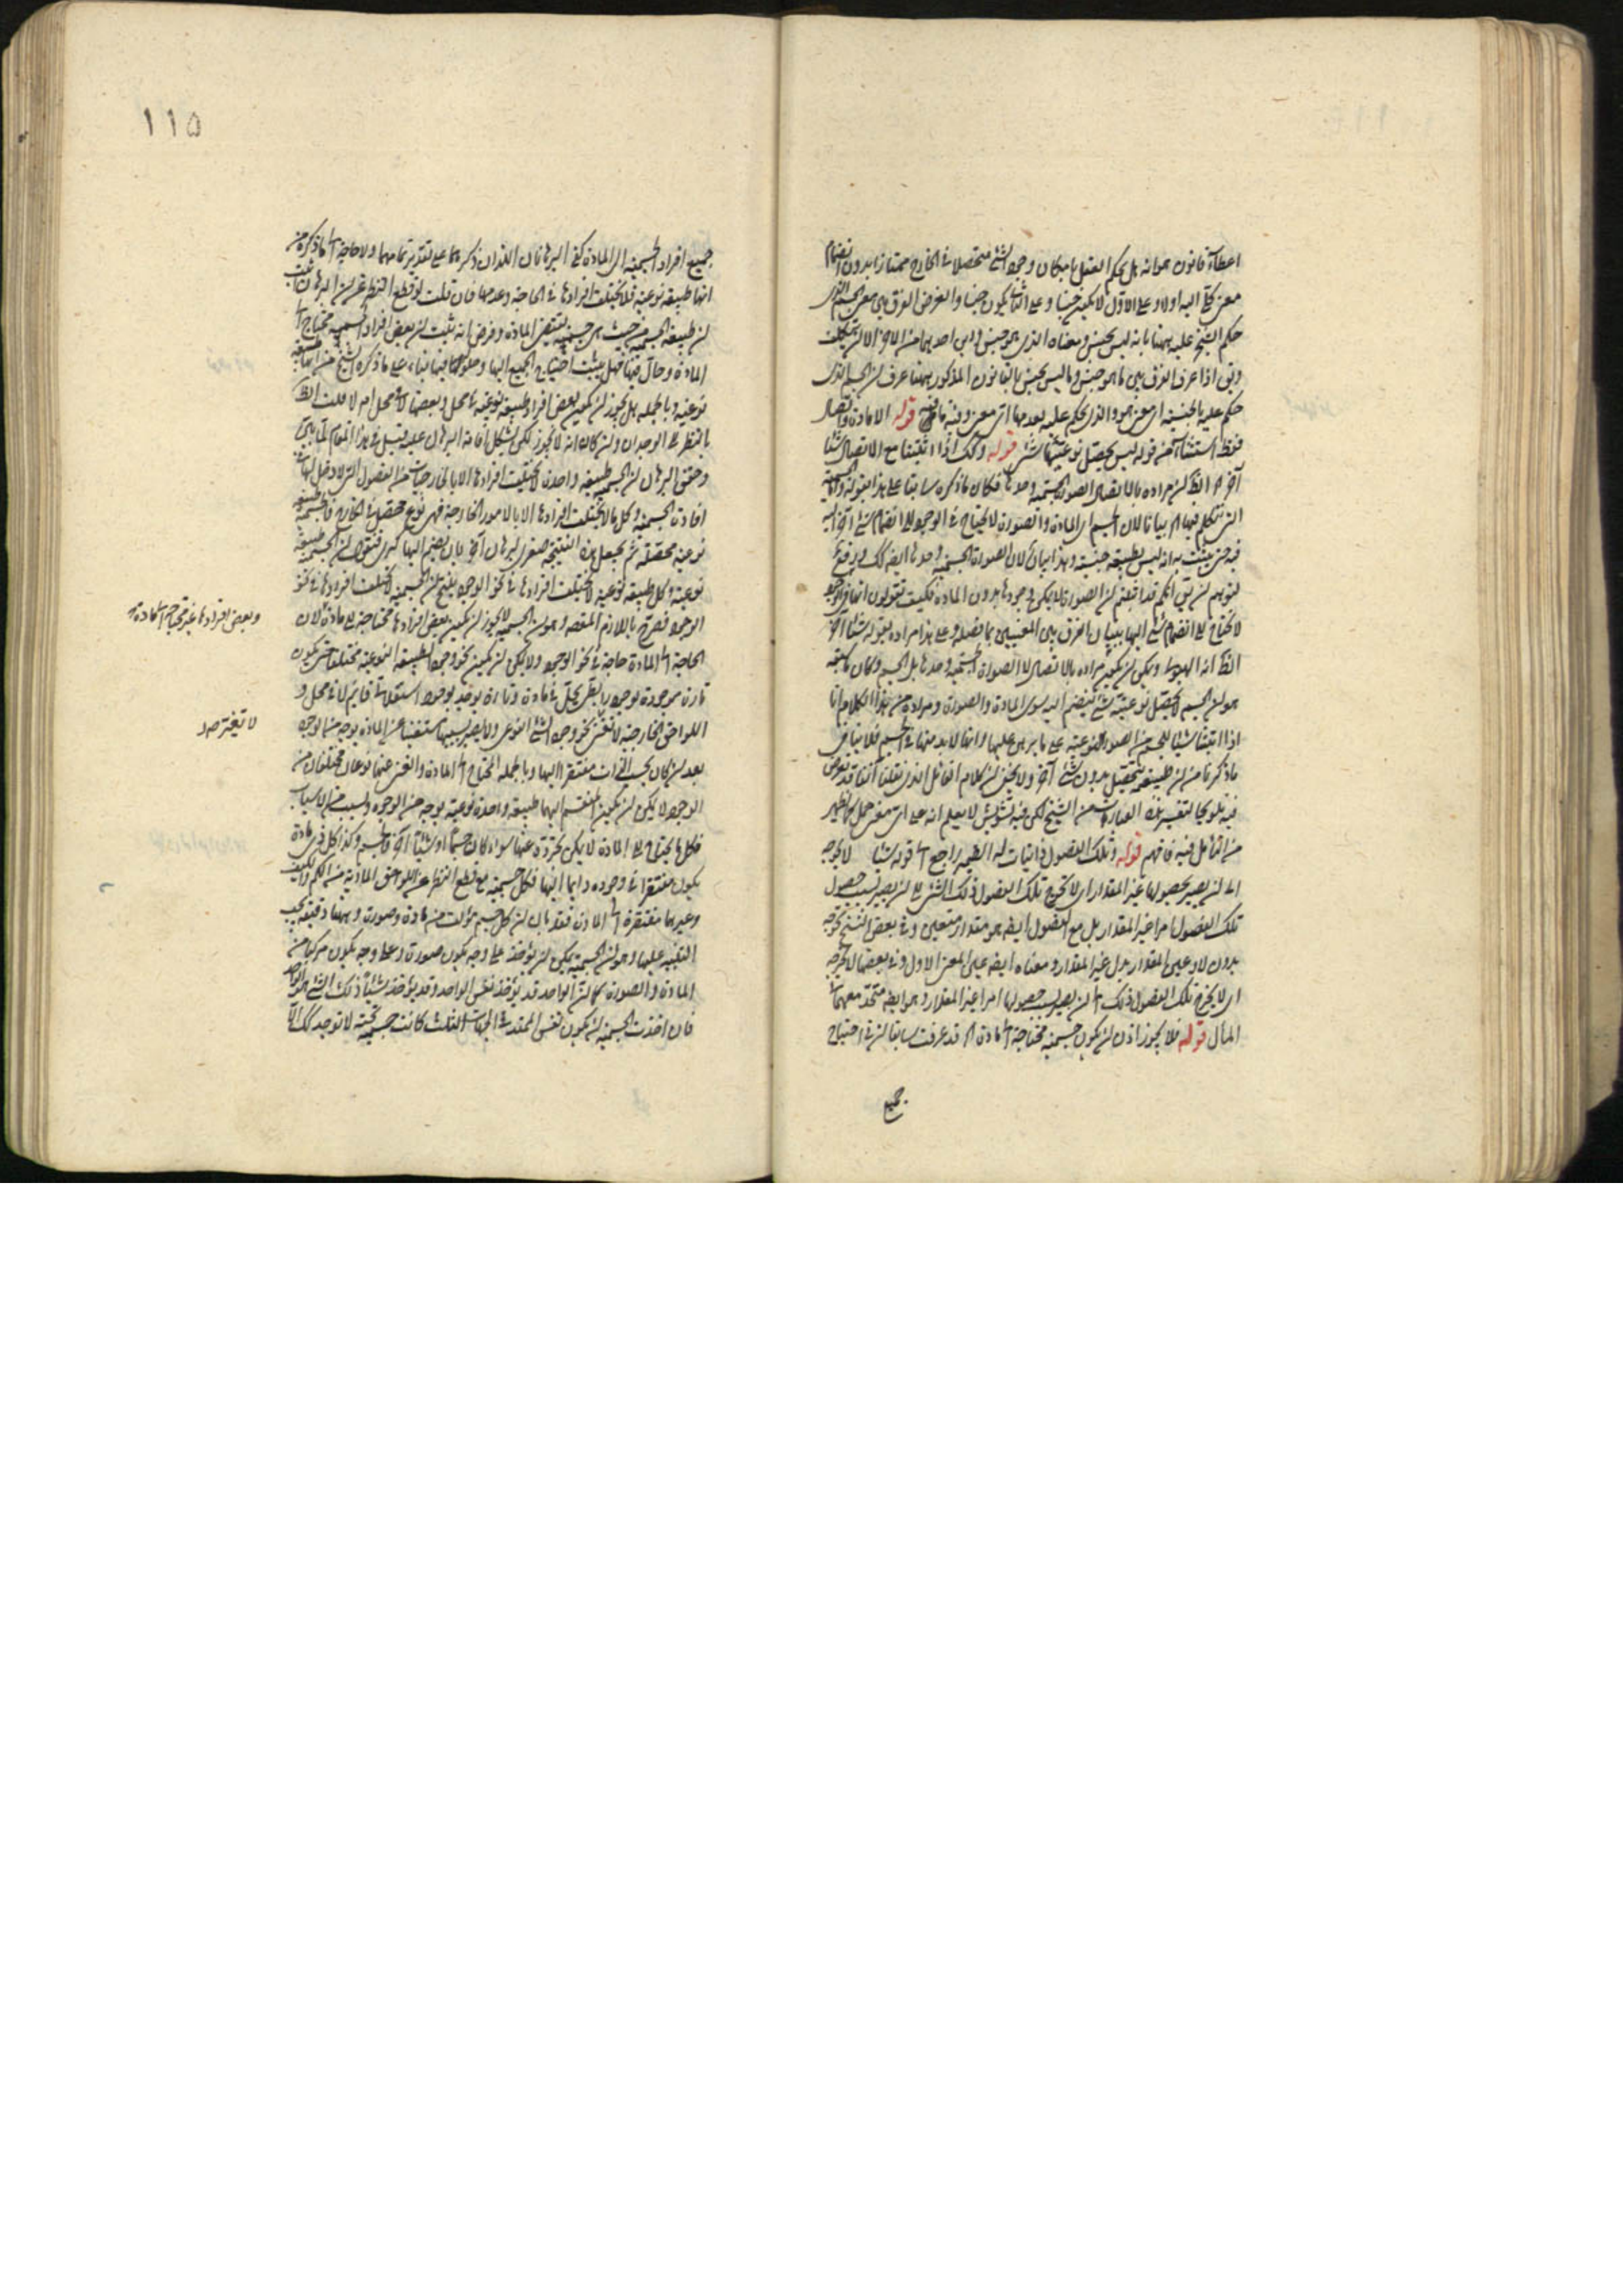 اعطاء قانون هو انه هل يحكم العقل بامكان وجود الشئ متحصلا فى الخارج ممتازا بدون انضمام
معنى اليه اولا وعلى الاول لا يكون جنسا وعلى الثانى يكون جنسا والغرض الفرق بين معنى الجسم الذى
حكم الشيخ عليه ههنا بانه ليس بجنس ومعناه الذى هو جنس
اذا عرف الفرق بين ما هو جنس وما ليس بجنس بالقانون المذكور ههنا عرف ان الجسم الذى
حكم عليه بالجنسية اى معنى هو والذى يحكم عليه بعدمها اى معنى قوله الا مادة واتصال
فقط استثناء من قوله ليس يحصل نوعيتها شئ قوله وكذلك اذا اثبتنا مع الاتصال شيئا
آخر الظ ان مراده بالاتصال الصورة الجسمية وحدها فكان ما ذكره سابقا على هذا
لان الجسم اى المادة والصورة لا يحتاج فى الوجود الى انضمام شئ آخر اليه
فيه حتى يثبت به انه ليس بطبيعة جنسية وهذا بيان لان الصورة الجسمية وحدها ايضا كذلك ودفع
لتوهم ان يق انكم قد اثبتم ان الصورة لا يمكن وجودها بدون المادة فكيف تقولون
لا تحتاج الى انضمام شئ اليها ببيان الفرق بين المعنيين بما فصله وعلى هذا مراده بقوله شيئا آخر
الظ انه الهيولى ويمكن ان يكون مراده بالاتصال لا الصورة الجسمية وحدها بل الجسم وكان
هو ان الجسم لا يحصل نوعيته شئ ينضم اليه سوى المادة والصورة ومراده من هذا الكلام انا
اذا اثبتنا شيئا للجسم من الصور النوعية على ما برهن عليها وانها لا بد منها فى الجسم فلا ينافى
ما ذكرنا من ان طبيعته يتحصل بدون شئ آخر ولا يخفى ان كلام القائل الذى نقلنا آنفا قد تعرض
فيه من الشيخ لكن فيه تشويش لا يعلم انه على اى معنى حمل كما يظهر
من التأمل فيه فافهم قوله وتلك الفصول ذاتيات له الضمير راجع الى قوله شيئا لا يحوجه
الى ان يصير بحصولها غير المقدار اى لا تحوج تلك الفصول ذلك الشئ الى ان يصير بسبب حصول
تلك الفصول امرا غير المقدار بل مع الفصول ايضه هو مقدار متعين وفى بعض النسخ يحوجه
بدون لا وعين المقدار بدل غير المقدار ومعناه ايضه عين المعنى الاول وفى بعضها لا يخرجه
اى لا يخرج تلك الفصول ذلك الى ان يصير بسبب حصولها امرا غير المقدار وهو ايضه متحد معهما فى
المآل قوله فلا يجوز اذن ان يكون جسمية محتاجة الى مادة الخ قد عرفت سابقا ان فى احتياج
جميع
١١٥
جميع افراد الجسمية الى المادة كفى البرهانان اللذان ذكرهما على تقدير تمامهما ولا حاجة الى ما ذكره من
انها طبيعة نوعية فلا يختلف افرادها فى الحاجة وعدمها فان قلت لو قطع النظر عن ان البرهان يثبت
ان طبيعة الجسمية من حيث هى جسمية يقتضى المادة وفرض انه يثبت ان بعض افراد الجسمية محتاج الى
المادة وحال فيها فهل يثبت احتياج الجميع اليها وحلولها فيها بناء على ما ذكره الشيخ من انها طبيعة
نوعية وبالجملة هل يجوز ان يكون بعض افراد طبيعة نوعية فى محل وبعضها لا فى محل ام لا قلت الظ
بالنظر الى الوجدان وان كان انه لا يجوز لكن يشكل اقامة البرهان عليه وقيل فى هذا المقام لما بين
وحقق البرهان ان الجسمية طبيعة واحدة لا يختلف افرادها الا بالخارجيات من الفصول التى لا دخل لها فى
افادة الجسمية وكل ما لا يختلف افرادها الا بالامور الخارجة فهى نوع محصل فى الخارج فالجسمية طبيعة
نوعية محصلة ثم يجعل هذه النتيجة صغرى لبرهان آخر بان يضم اليها كبرى فنقول ان الجسمية طبيعة
نوعية وكل طبيعة نوعية لا يختلف افرادها فى نحو الوجود ينتج ان الجسمية لا يختلف افرادها فى نحو
الوجود فصرح باللازم المقصود وهو ان الجسمية لا يجوز ان يكون بعض افرادها محتاجة الى مادة لان
وبعض افرادها غير محتاجة الى مادة
الحاجة الى المادة حاجة فى نحو الوجود ولا يمكن ان يكون نحو وجود الطبيعة النوعية مختلفا حتى يكون
تارة موجودة بوجود يحل فى مادة وتارة يوجد بوجود استقلالى قايم لا فى محل و
اللواحق الخارجية لا تغنى نحو وجود الشئ النوعى ولا يصير بسببها مستغنيا عن المادة بوجه من الوجوه
لا تغير صد
بعد ان كان بحسب الذات مفتقرا اليها وبالجملة المحتاج الى المادة والغنى عنها نوعان مختلفان من
الوجود لا يمكن ان يكون المنقسم اليهما طبيعة واحدة نوعية بوجه من الوجوه ولسبب من الاسباب
فكل ما يحتاج الى المادة لا يمكن تجرده عنها سواء كان جسما او شيئا آخر فالجسم وكذا كل ذى مادة
يكون مفتقرا فى وجوده دايما اليها فكل جسمية مع قطع النظر عن اللواحق المادية من الكم والكيف
وغيرهما مفتقرة الى المادة فقد بان ان كل جسم مؤلف من مادة وصورة وههنا دقيقة يجب
التنبيه عليها وهو ان الجسمية يمكن ان يؤخذ على وجه يكون صورة وعلى وجه يكون مركبا من
المادة والصورة كما ان الواحد قد يؤخذ نفس الواحد وقد يؤخذ شيئا ذلك الشئ هو الواحد
فان اخذت الجسمية ان يكون نفس الممتد فى الجهات الثلث كانت جسمية لا توجد كذلك الا